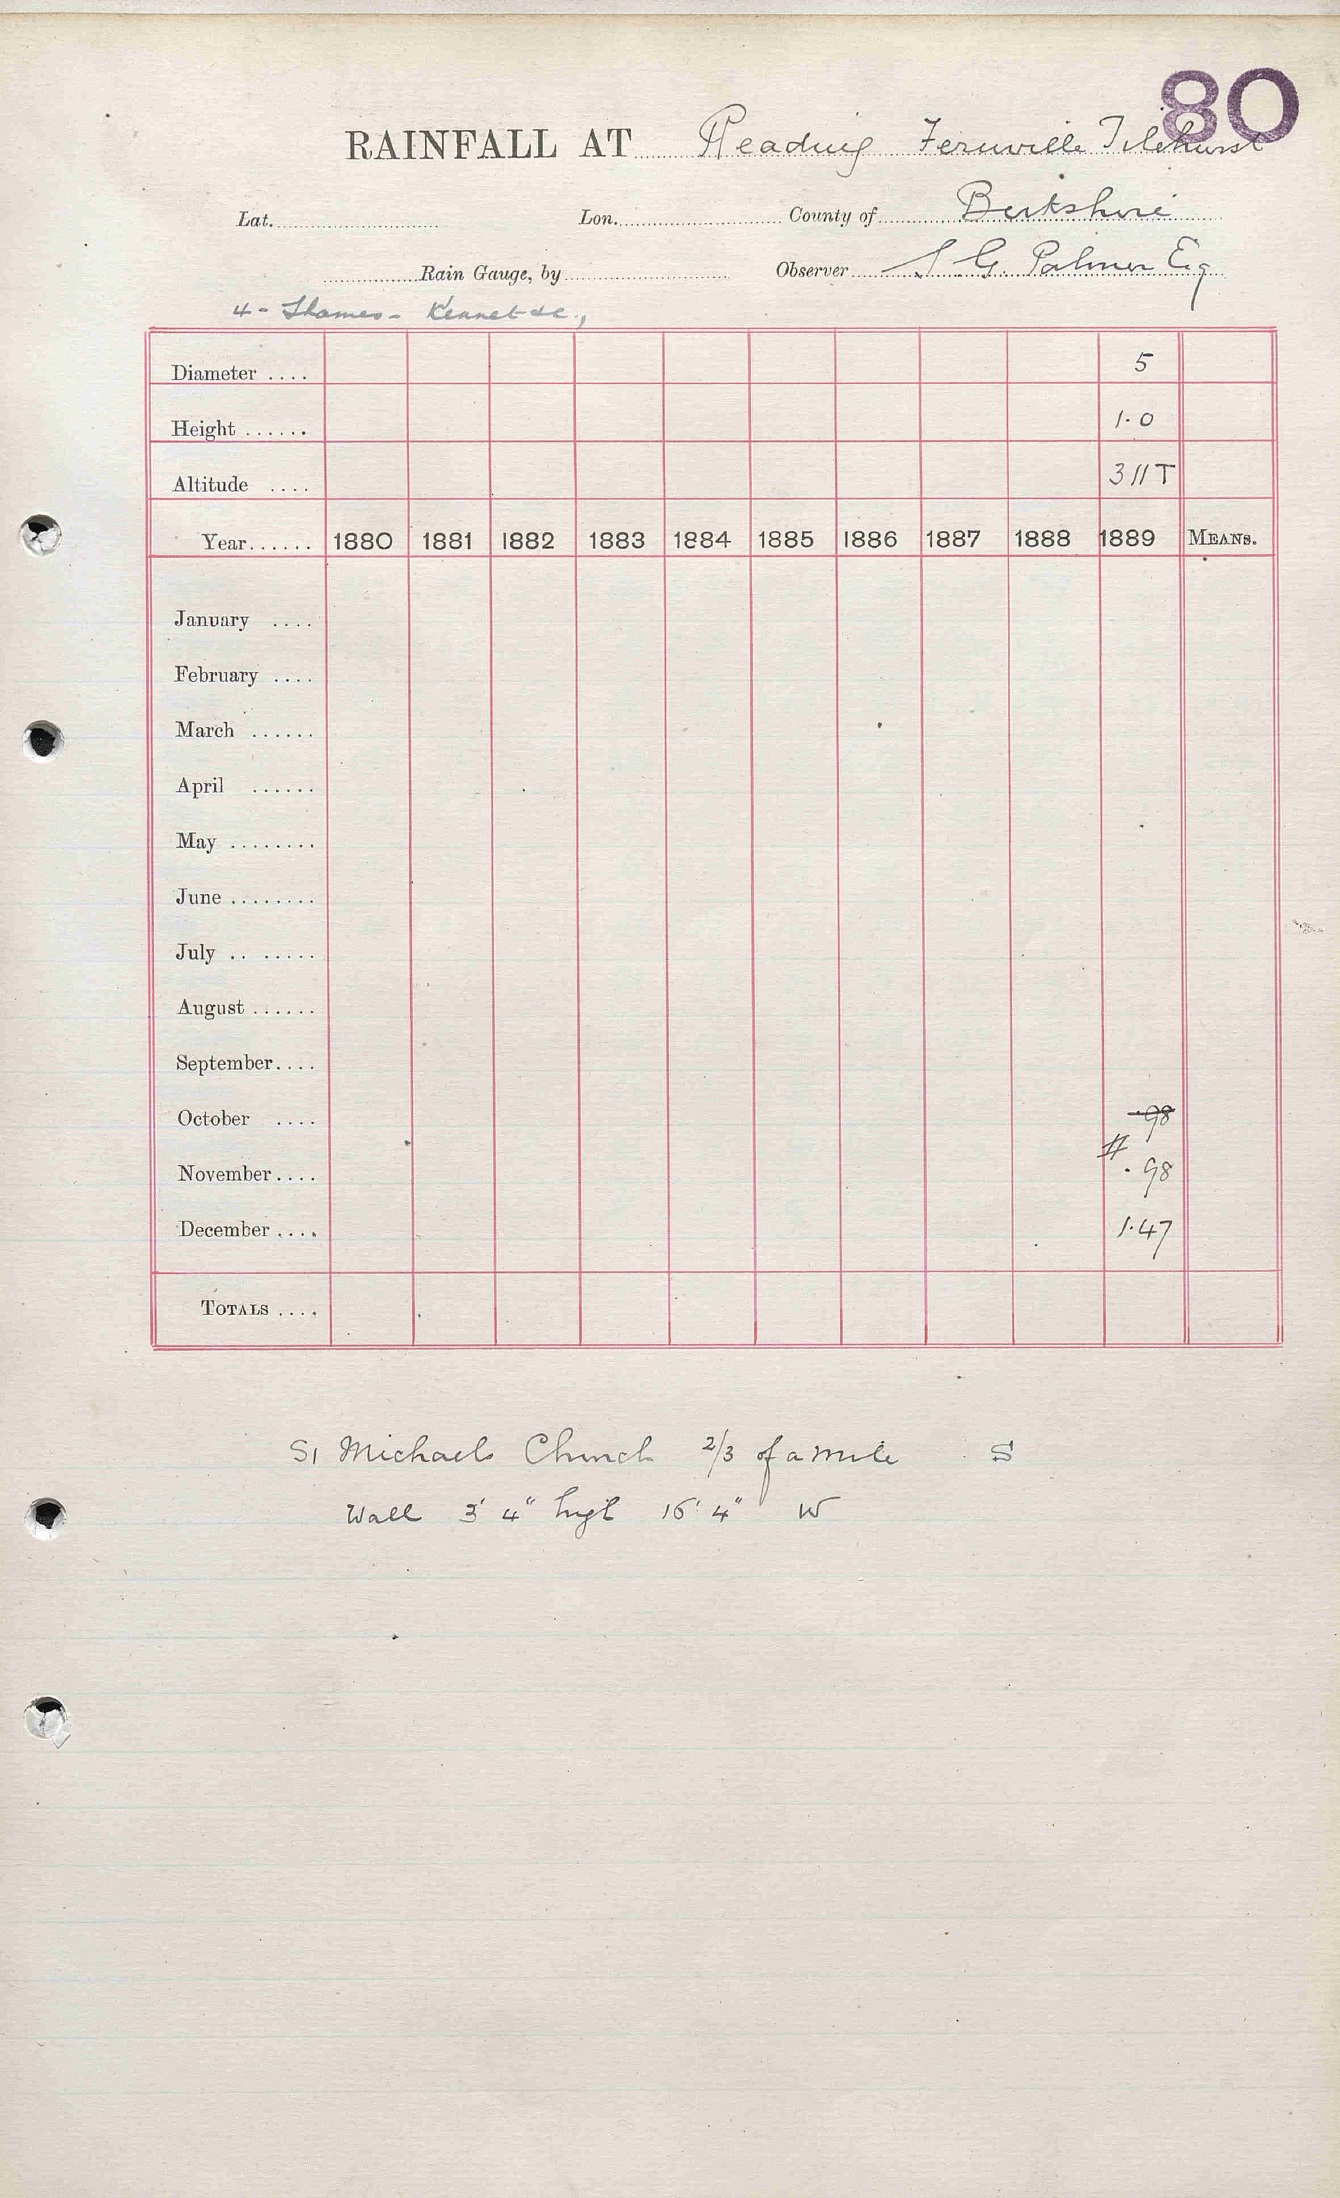 80
RAINFALL AT Reading Fernville Tilehurst
Lat. Lon. County of Berkshire
Rain Gauge, by Observer S G. Palmer Esq
4 - Thames - Kennet &c.,
Diameter .... 5
Height ...... 1.0
Altitude .... 311 T
Year...... 1880 1881 1882 1883 1884 1885 1886 1887 1888 1889 MEANS.
January ....
February ....
March ......
April ......
May ........
June ........
July .. ......
August ......
September....
October .... .98
#
November.... .98
December .... 1.47
TOTALS ....
St Michaels Church 2/3 of a mile S
Wall 3' 4" high 16' 4" W